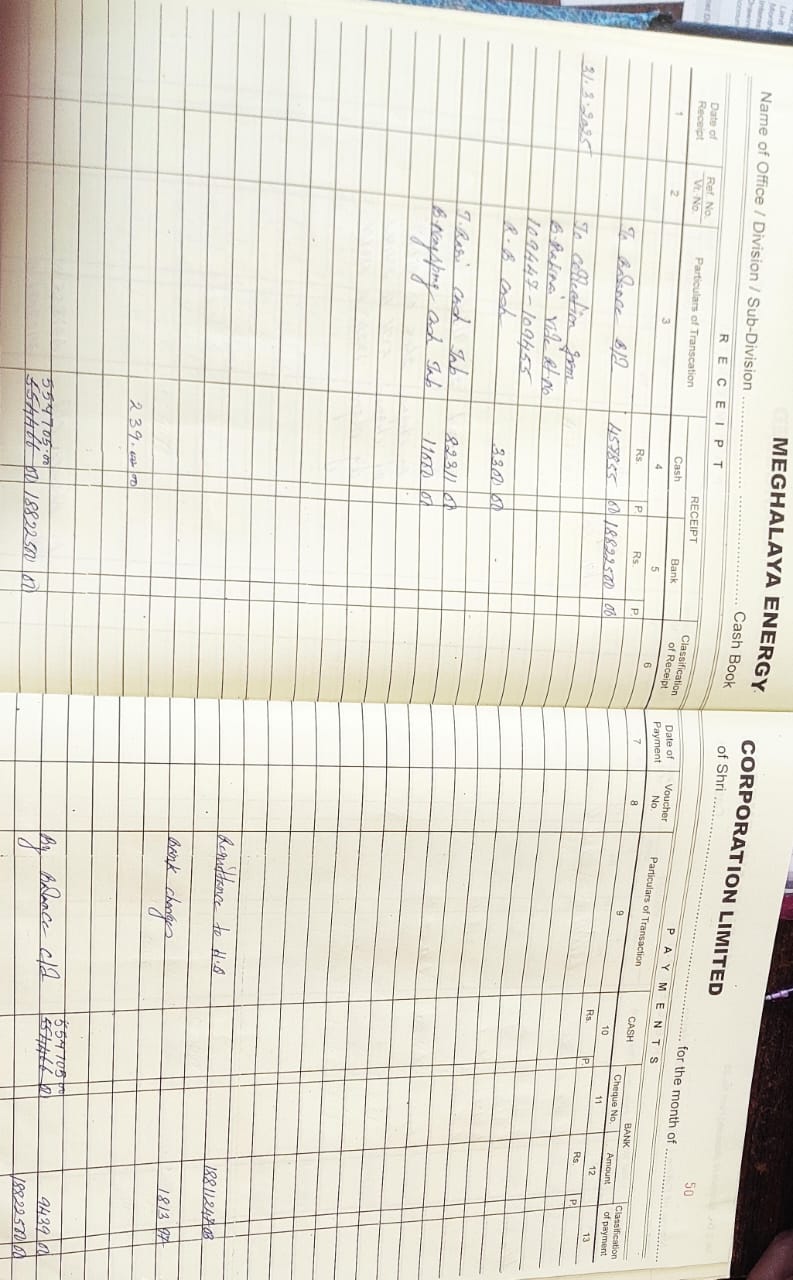 MEGHALAYA ENERGY CORPORATION LIMITED
Name of Office / Division / Sub-Division ............ Cash Book of Shri ............ for the month of ............
50
RECEIPT
Date of Receipt
Ref. No. Vr. No.
Particulars of Transcation
RECEIPT
Cash
Bank
Classification of Receipt
1 2 3 4 5 6
Rs. P. Rs. P.
To Balance B/D 457855 00 18822500 00
31.3.2025 To collection from
109447 - 109455
R.B cash 3300 00
82311 00
cash 11000 00
239.00 00
559705.00
18822500 00
PAYMENTS
Date of Payment
Voucher No.
Particulars of Transaction
CASH
BANK
Cheque No.
Amount
Classification of payment
7 8 9 10 11 12 13
Rs. P Rs. P.
Remittance to H.O
Bank charges 1813
559705.00
By Balance c/d 9439 00
18822500 00